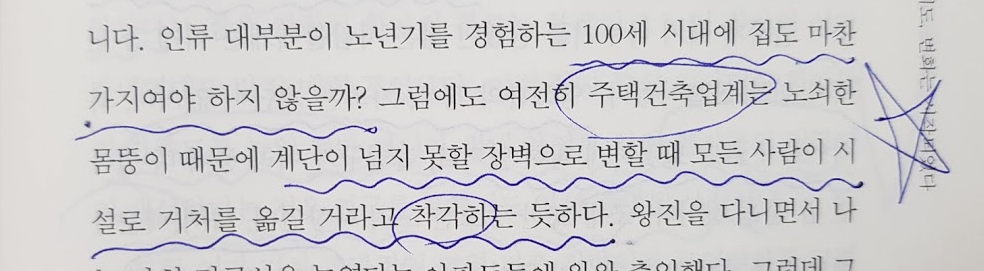 니다. 인류 대부분이 노년기를 경험하는 100세 시대에 집도 마찬
가지여야 하지 않을까? 그럼에도 여전히 주택건축업계는 노쇠한
몸뚱이 때문에 계단이 넘지 못할 장벽으로 변할 때 모든 사람이 시
설로 거처를 옮길 거라고 착각하는 듯하다. 왕진을 다니면서 나
변화는